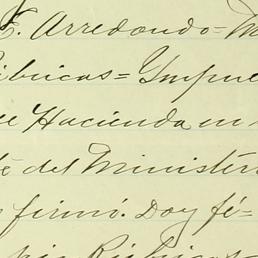 E. Arredondo = M
úbricas = Ympue
de Hacienda en
te del Ministér
firmó. Doy fé =
Rúbricas